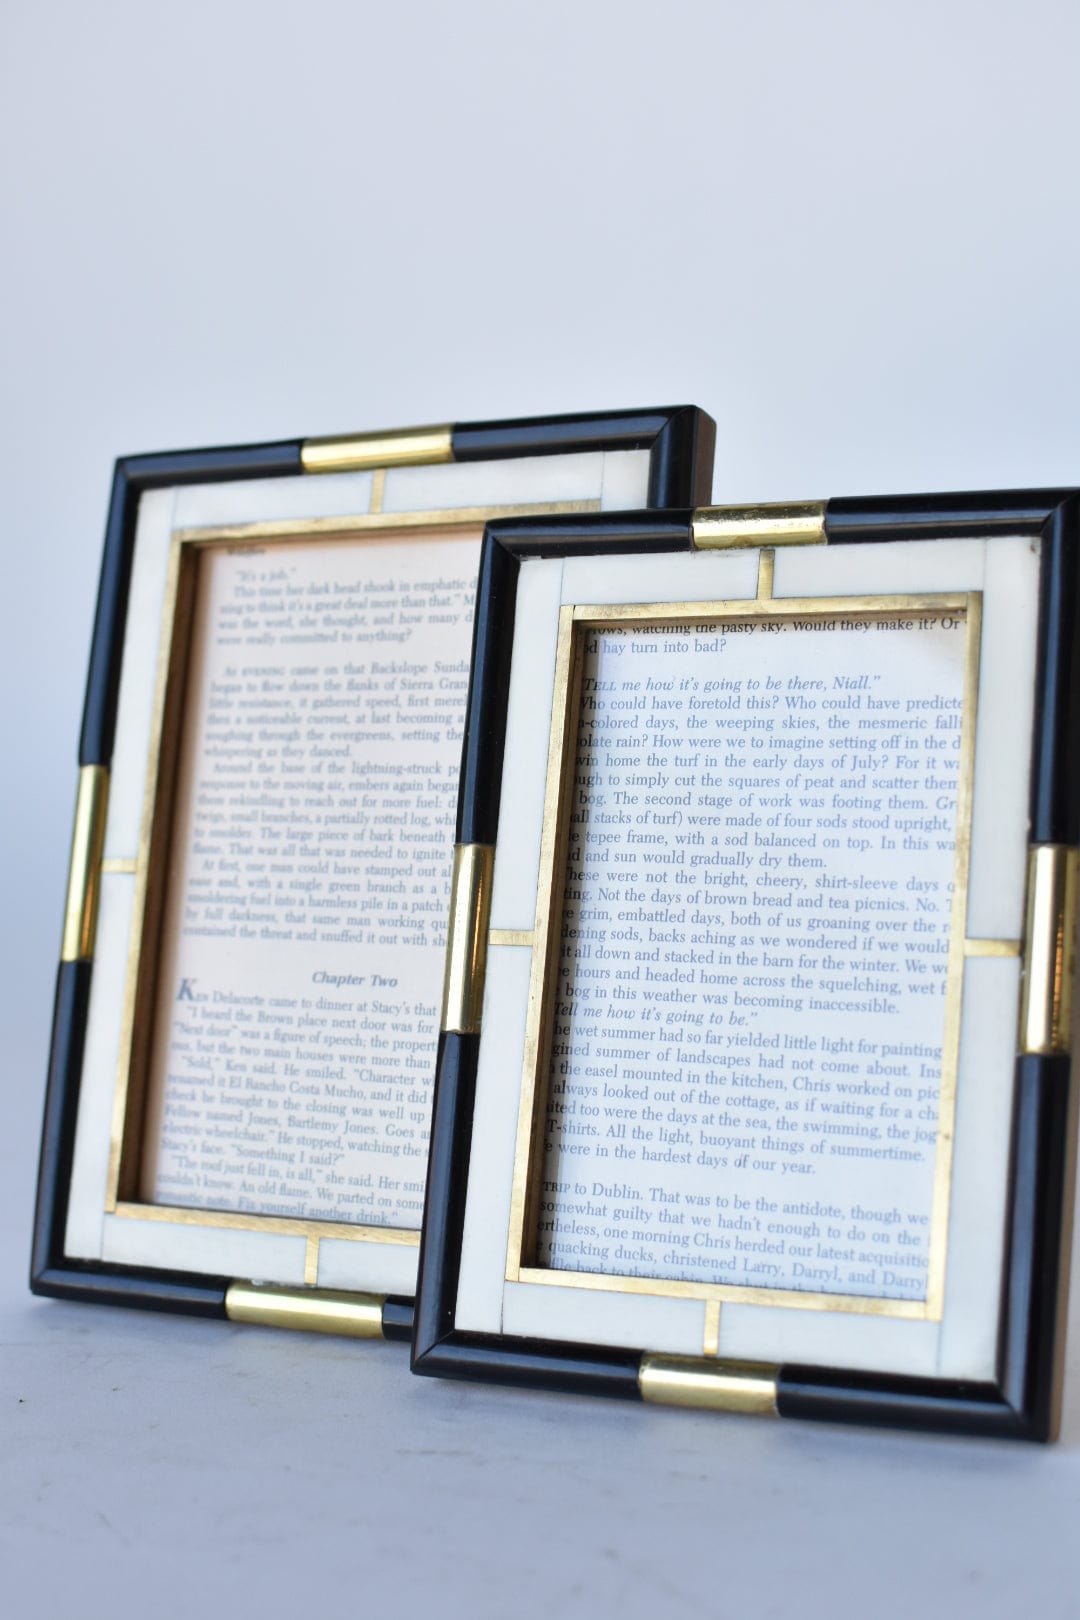 Wildfire
"It's a job."
This time her dark head shook in emphatic d
ning to think it's a great deal more than that." M
was the word, she thought, and how many d
were really committed to anything?
As EVENING came on that Backslope Sunda
began to flow down the flanks of Sierra Gran
little resistance, it gathered speed, first merel
then a noticeable current, at last becoming a
soughing through the evergreens, setting the
whispering as they danced.
Around the base of the lightning-struck po
response to the moving air, embers again began
them rekindling to reach out for more fuel: d
twigs, small branches, a partially rotted log, whi
to smolder. The large piece of bark beneath t
flame. That was all that was needed to ignite
At first, one man could have stamped out al
ease and, with a single green branch as a b
smoldering fuel into a harmless pile in a patch
by full darkness, that same man working qu
contained the threat and snuffed it out with sh
Chapter Two
KEN Delacorte came to dinner at Stacy's that
"I heard the Brown place next door was for
"Next door" was a figure of speech; the propert
ous, but the two main houses were more than
"Sold," Ken said. He smiled. "Character wh
renamed it El Rancho Costa Mucho, and it did
check he brought to the closing was well up
Fellow named Jones, Bartlemy Jones. Goes a
electric wheelchair." He stopped, watching the
Stacy's face. "Something I said?"
"The roof just fell in, is all," she said. Her smi
couldn't know. An old flame. We parted on some
romantic note. Fix yourself another drink."
rows, watching the pasty sky. Would they make it? Or
d hay turn into bad?
"TELL me how it's going to be there, Niall."
Who could have foretold this? Who could have predicte
-colored days, the weeping skies, the mesmeric falli
olate rain? How were we to imagine setting off in the d
win home the turf in the early days of July? For it wa
ugh to simply cut the squares of peat and scatter them
bog. The second stage of work was footing them. Gr
all stacks of turf) were made of four sods stood upright,
e tepee frame, with a sod balanced on top. In this wa
d and sun would gradually dry them.
hese were not the bright, cheery, shirt-sleeve days o
ting. Not the days of brown bread and tea picnics. No. T
e grim, embattled days, both of us groaning over the r
dening sods, backs aching as we wondered if we would
it all down and stacked in the barn for the winter. We wo
e hours and headed home across the squelching, wet f
bog in this weather was becoming inaccessible.
Tell me how it's going to be."
he wet summer had so far yielded little light for painting
gined summer of landscapes had not come about. Ins
the easel mounted in the kitchen, Chris worked on pic
always looked out of the cottage, as if waiting for a cha
ited too were the days at the sea, the swimming, the jog
T-shirts. All the light, buoyant things of summertime.
e were in the hardest days of our year.
TRIP to Dublin. That was to be the antidote, though we
somewhat guilty that we hadn't enough to do on the
ertheless, one morning Chris herded our latest acquisitio
quacking ducks, christened Larry, Darryl, and Darryl
back to their cabin. We shut